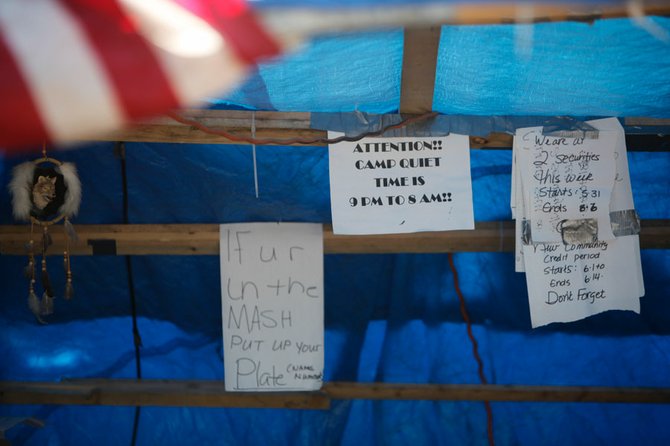 ATTENTION!!
CAMP QUIET
TIME IS
9 PM TO 8 AM!!
If u r
in the
MASH
PUT UP YOUR
Plate (NAME
NUMBER)
We are at
2 securities
this week
Starts: 5 31
Ends 6-6
Your Community
Credit period
Starts: 6-1
Ends 6-14
Don't Forget